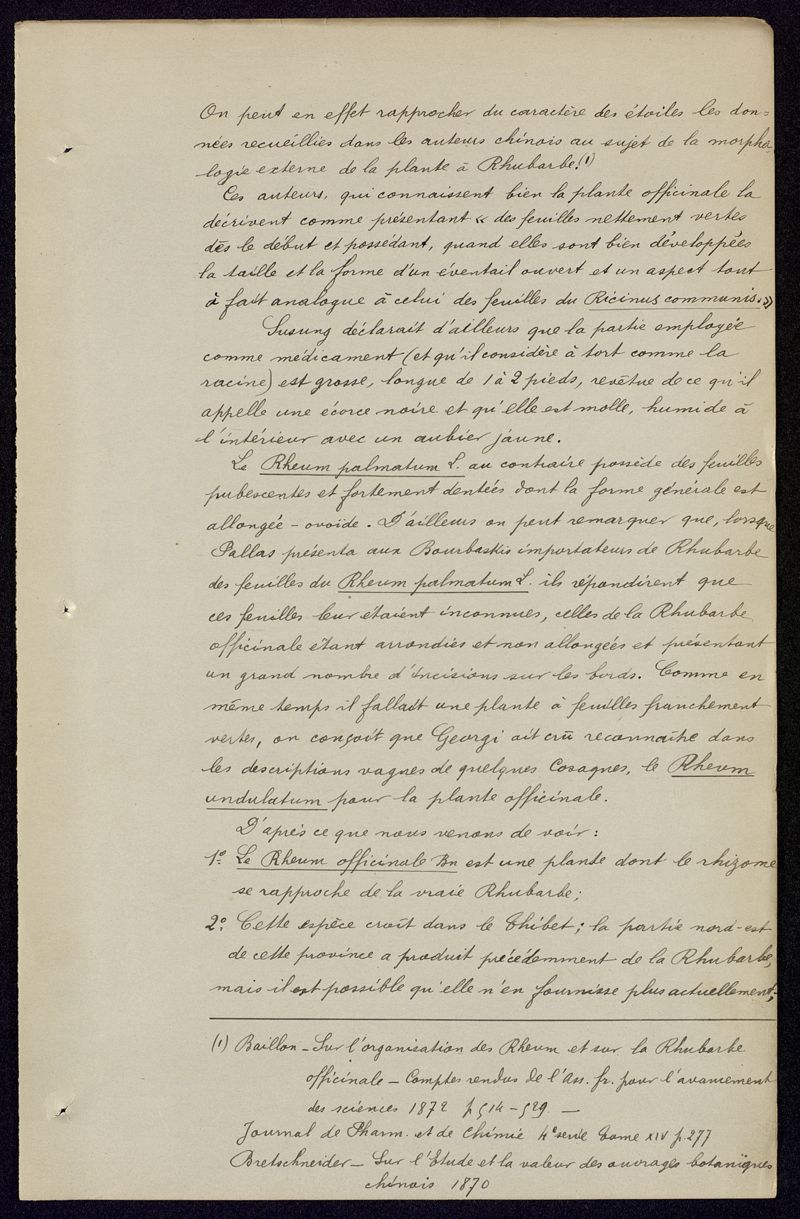 On peut en effet rapprocher du caractère des étoiles les don=
nées recueillies dans les auteurs chinois au sujet de la morpho
logie externe de la plante à Rhubarbe.(1)
Ces auteurs, qui connaissent bien la plante officinale la
décrivent comme présentant « des feuilles nettement vertes
dès le début et possédant, quand elles sont bien développées
la taille et la forme d'un éventail ouvert et un aspect tout
à fait analogue à celui des feuilles du Ricinus communis. »
Susung déclarait d'ailleurs que la partie employée
comme médicament (et qu'il considère à tort comme la
racine) est grosse, longue de 1 à 2 pieds, revêtue de ce qu'il
appelle une écorce noire et qu'elle est molle, humide à
l'intérieur avec un aubier jaune.
Le Rheum palmatum L. au contraire possède des feuilles
pubescentes et fortement dentées dont la forme générale est
allongée - ovoïde. D'ailleurs on peut remarquer que, lorsque
Pallas présenta aux Bourbaskis importateurs de Rhubarbe
des feuilles du Rheum palmatum L. ils répondirent que
ces feuilles leur étaient inconnues, celles de la Rhubarbe
officinale étant arrondies et non allongées et présentant
un grand nombre d'incisions sur les bords. Comme en
même temps il fallait une plante à feuilles franchement
vertes, on conçoit que Georgi ait crû reconnaître dans
les descriptions vagues de quelques Cosaques, le Rheum
undulatum pour la plante officinale.
D'après ce que nous venons de voir :
1º. Le Rheum officinale Bn est une plante dont le rhizome
se rapproche de la vraie Rhubarbe ;
2º. Cette espèce croît dans le Thibet ; la partie nord-est
de cette province a produit précédemment de la Rhubarbe,
mais il est possible qu'elle n'en fournisse plus actuellement ;
(1) Baillon - Sur l'organisation des Rheum et sur la Rhubarbe
officinale - Comptes rendus de l'Ass. fr. pour l'avancement
des sciences 1872 p 514 - 529 -
Journal de Pharm. et de Chimie 4e série Tome XIV p. 277
Bretschneider - Sur l'Etude et la valeur des ouvrages botaniques
chinois 1870